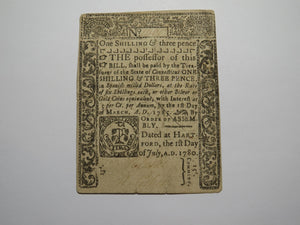 No
One SHILLING & three pence
THE possessor of this
BILL, shall be paid by the Trea-
surer of the State of Connecticut ONE
SHILLING & THREE PENCE,
in Spanish milled Dollars, at the Rate
of Six Shillings each, or other Silver or
Gold Coins equivalent, with Interest at
5 per Ct. per Annum, by the 1st Day
of MARCH, A.D. 1785. By
ORDER of ASSEM-
BLY.
Dated at HART-
FORD, the 1st Day
of July, A.D. 1780.